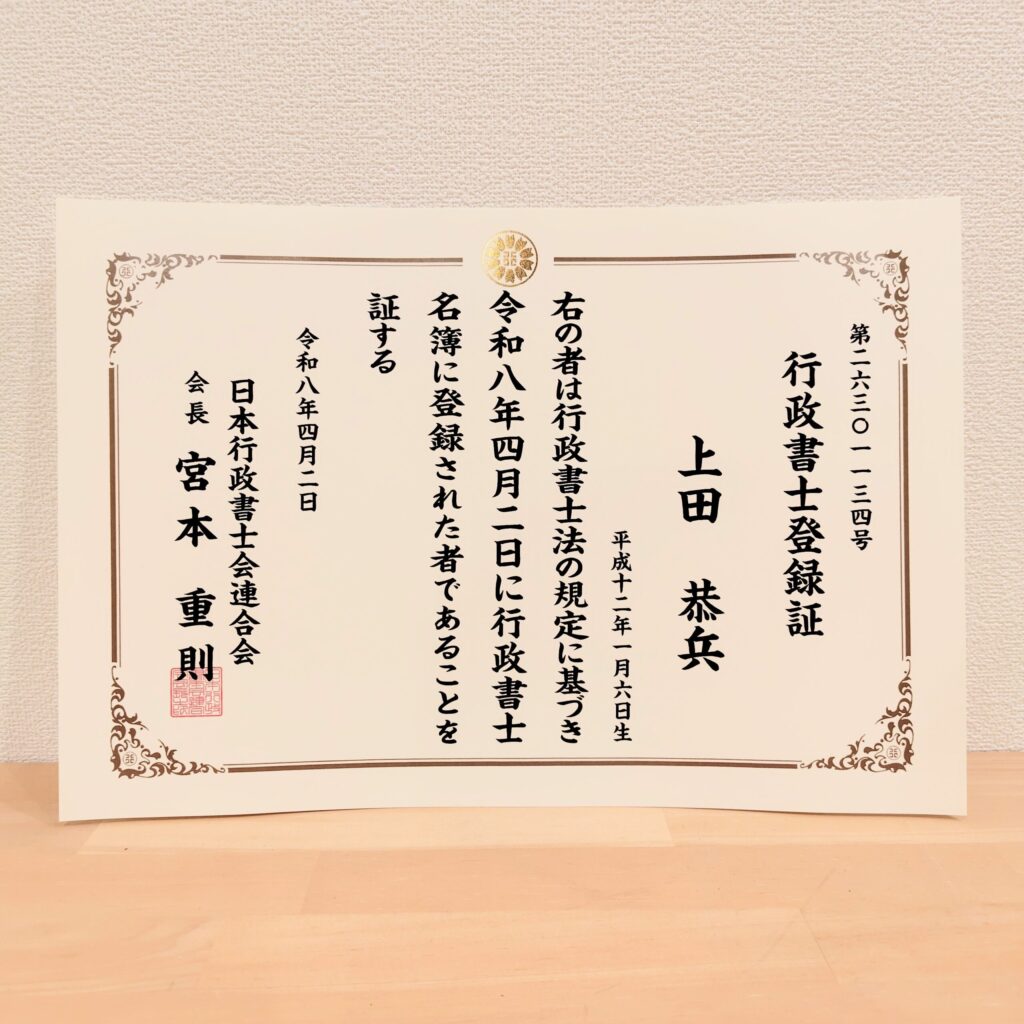 第二六三〇一一三四号
行政書士登録証
上田 恭兵
平成十二年一月六日生
右の者は行政書士法の規定に基づき
令和八年四月二日に行政書士
名簿に登録された者であることを
証する
令和八年四月二日
日本行政書士会連合会
会長 宮本 重則